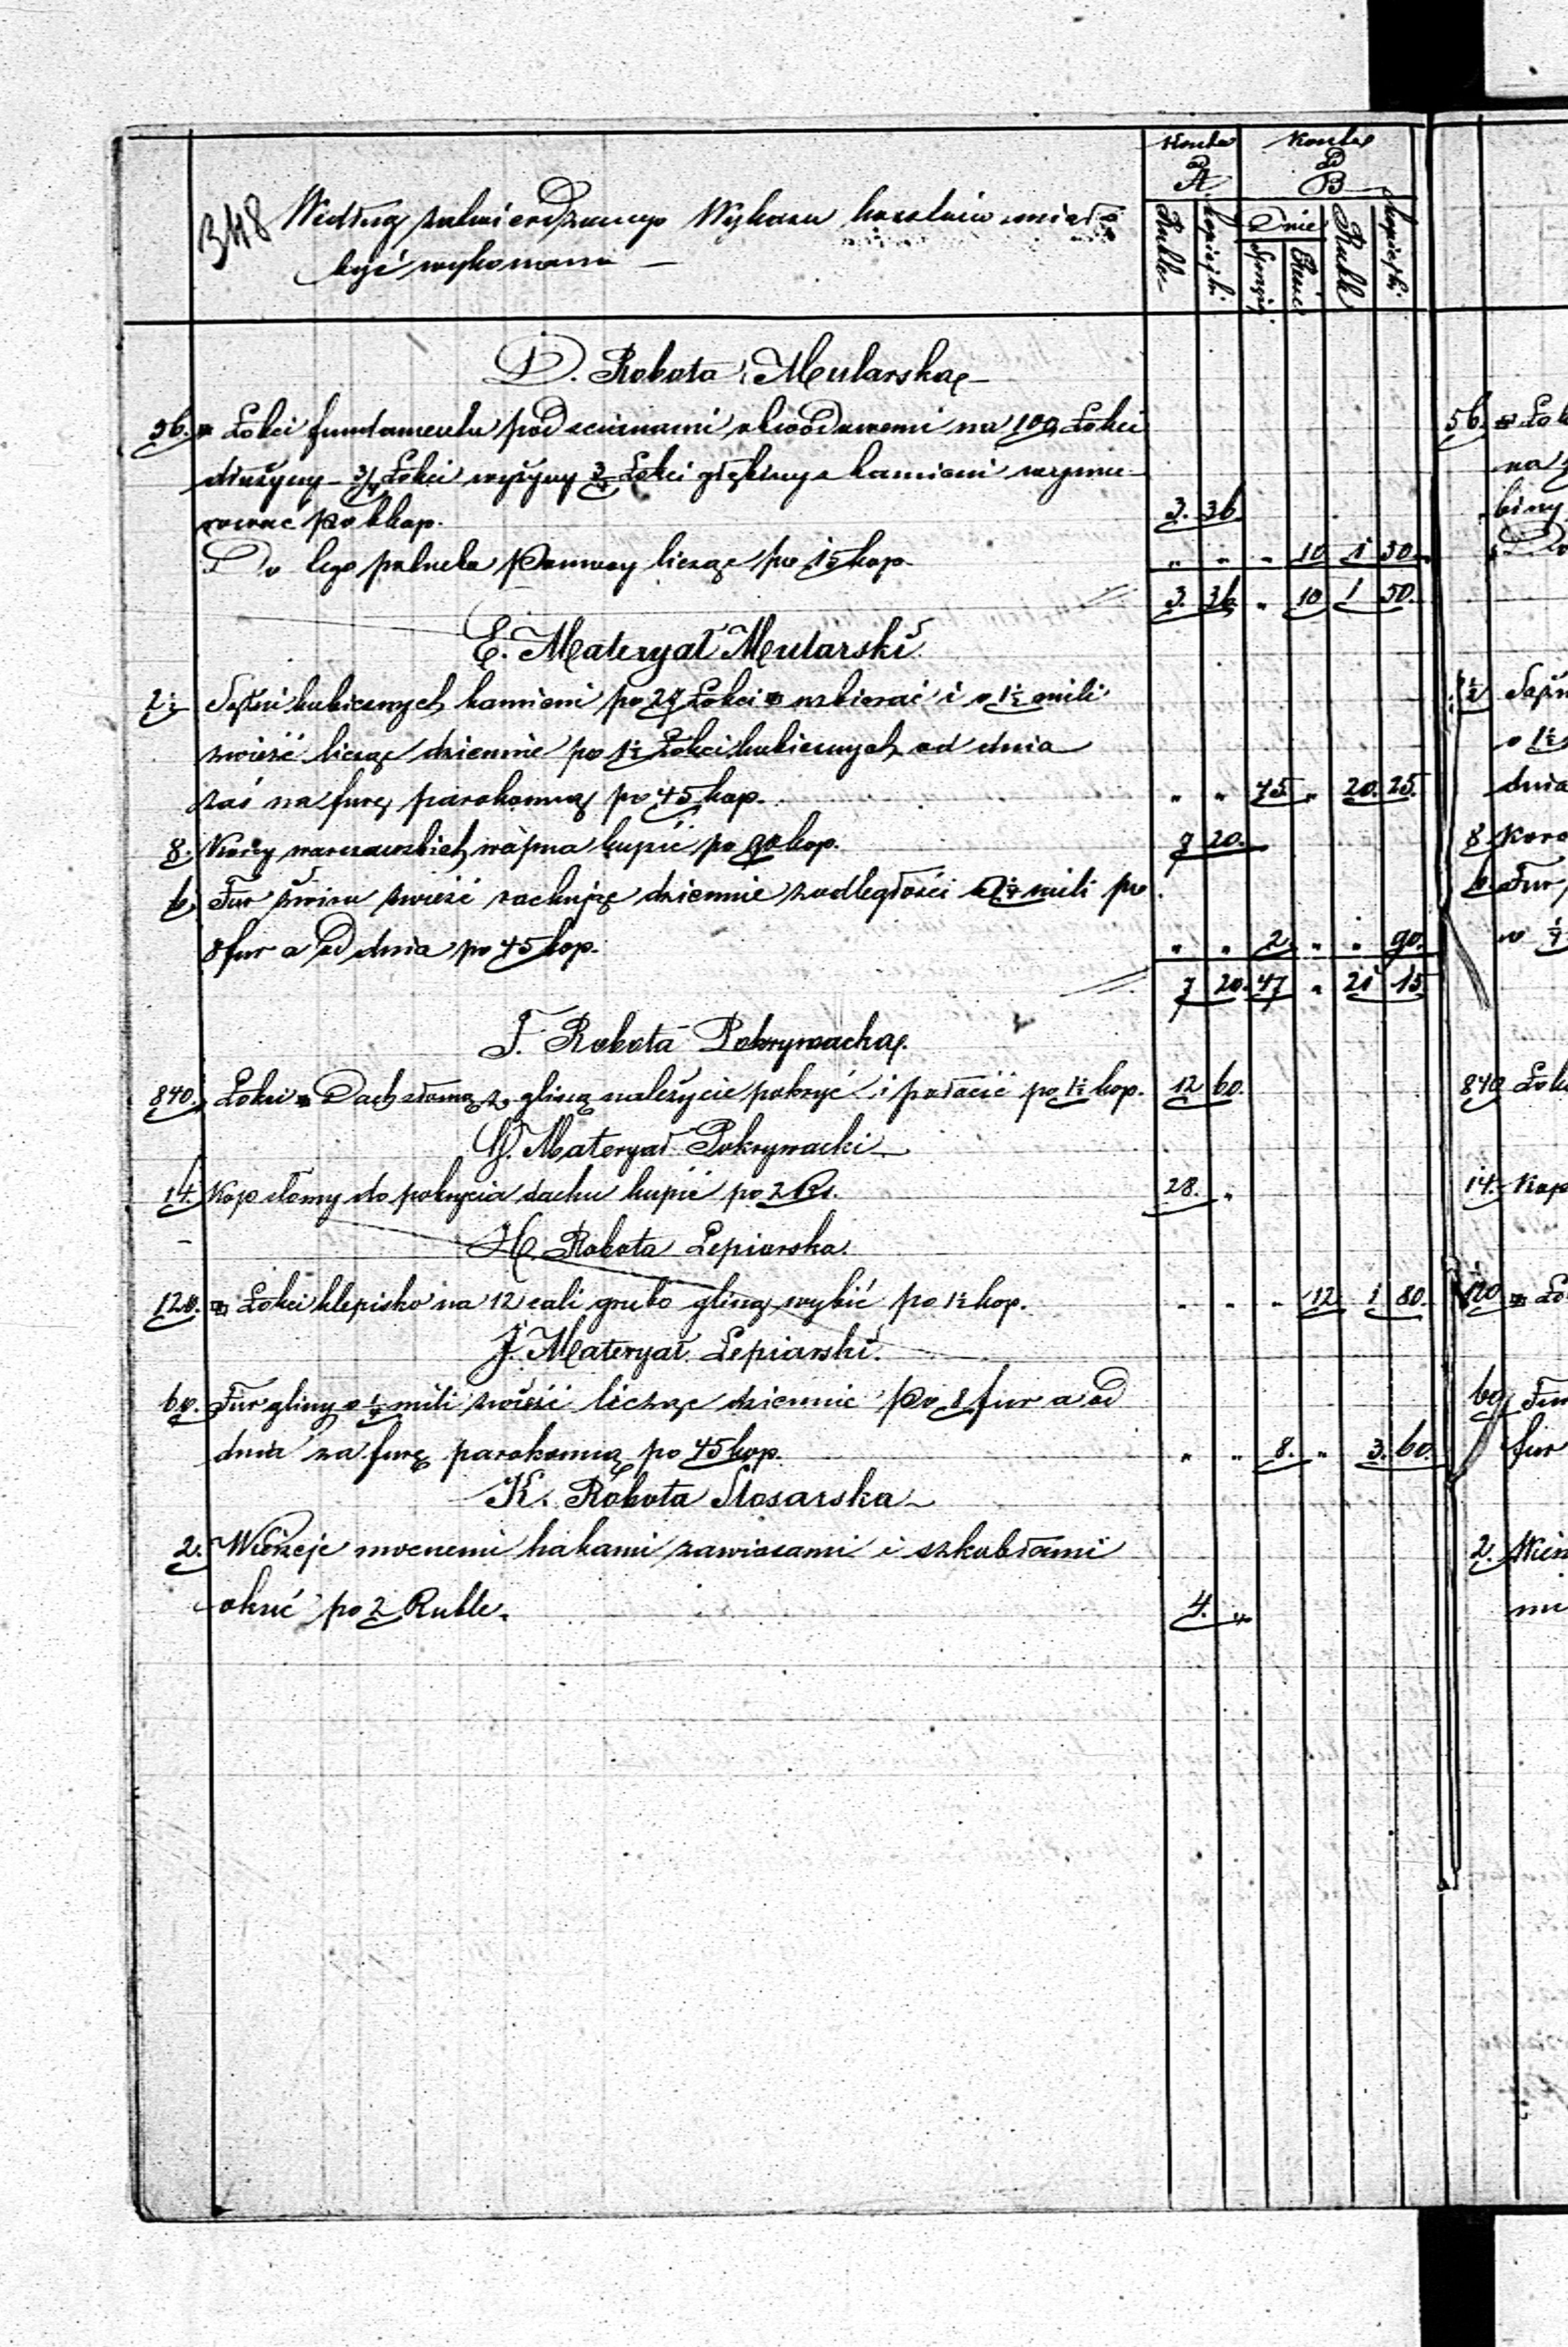 348 Według zatwierdzonego Wykazu kosztów miało
być wykonane —
Konta ad A
Konta ad B
Ruble
kopiejki
Dnie
Sprzęż.
Piesze
Ruble
kopiejki
D. Robota Mularska
56. □ Łokci fundamentu pod scianami obwodowemi na 100 Łokci
dłużyny 3/4 Łokci wyżyny 3/4 Łokci głębiny z kamieni wymu-
rować po 6 kop. 3. 36.
Do tego potrzeba Pomocy licząc po 15 kop. " " " 10 1 50
3. 36 " 10 1 50.
E. Materyał Mularski
2 1/2 Sążni kubicznych kamieni po 27 Łokci uzbierać i o 1 1/2 mili
zwieźć licząc dziennie po 1 1/2 Łokci kubicznych od dnia
zaś na furę parokonną po 45 kop. " " 45. " 20. 25.
8. Korcy warszawskich wapna kupić po 90 kop. 7 20.
6. Fur żwiru zwieźć rachując dziennie z odległości 1/4 mili po
8 fur a od dnia po 45 kop. " " 2. " " 90.
7 20. 47 " 21 15.
F. Robota Pokrywacka
840. Łokci □ Dach słomą z gliną należycie pokryć i połacić po 1 1/2 kop. 12 60.
G. Materyał Pokrywacki
14. Kop słomy do pokrycia dachu kupić po 2 Rs. 28. "
H. Robota Lepiarska
120. □ Łokci klepisko na 12 cali grubo gliną wybić po 1 1/2 kop. " " " 12 1 80.
J. Materyał Lepiarski.
60. Fur gliny o 1/4 mili zwieźć licząc dziennie po 8 fur a od
dnia za furę parokonną po 45 kop. " " 8. " 3. 60.
K. Robota Slosarska
2. Wierzeje mocnemi hakami zawiasami i szkoblami
okuć po 2 Ruble. 4. "
56 □ Łok
na
biny
Do
1/2 Sążn
o 1 1/2
dnia
8 Korc
6 Fur
o 1/4
840 Łok
14. Kop
120 □ Ło
60 Fur
fur
2. Wier
mi